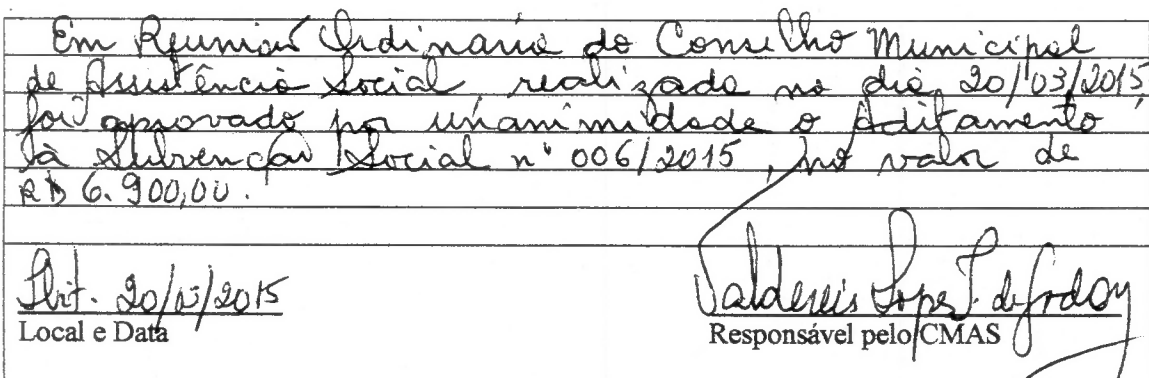 Em Reunião Ordinária do Conselho Municipal
de Assistência Social, realizada no dia 20/03/2015,
foi aprovado por unanimidade o Aditamento
à Subvenção Social nº 006/2015, no valor de
R$ 6.900,00.
20/03/2015 Lopes de Godoy
Local e Data Responsável pelo CMAS